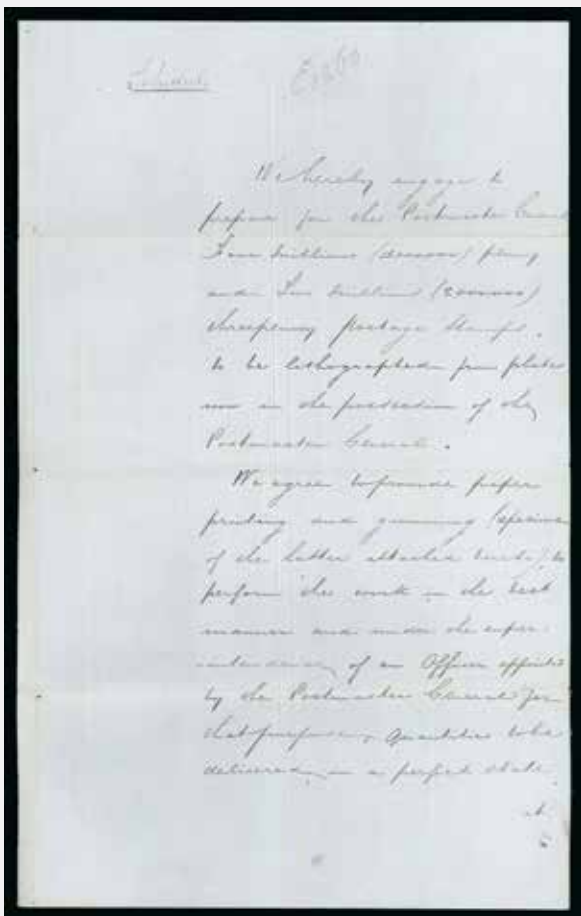 Schedule
We hereby engage to
prepare for the Postmaster General
Four Millions (4000000) penny
and Two Millions (2000000)
threepenny Postage Stamps.
to be lithographed from plates
now in the possession of the
Postmaster General.
We agree to provide paper
printing and gumming (specimen
of the latter attached hereto) to
perform the work in the best
manner and under the super-
intendence of an Officer appointed
by the Postmaster General for
that purpose, Quantities to be
delivered, in a perfect state
at